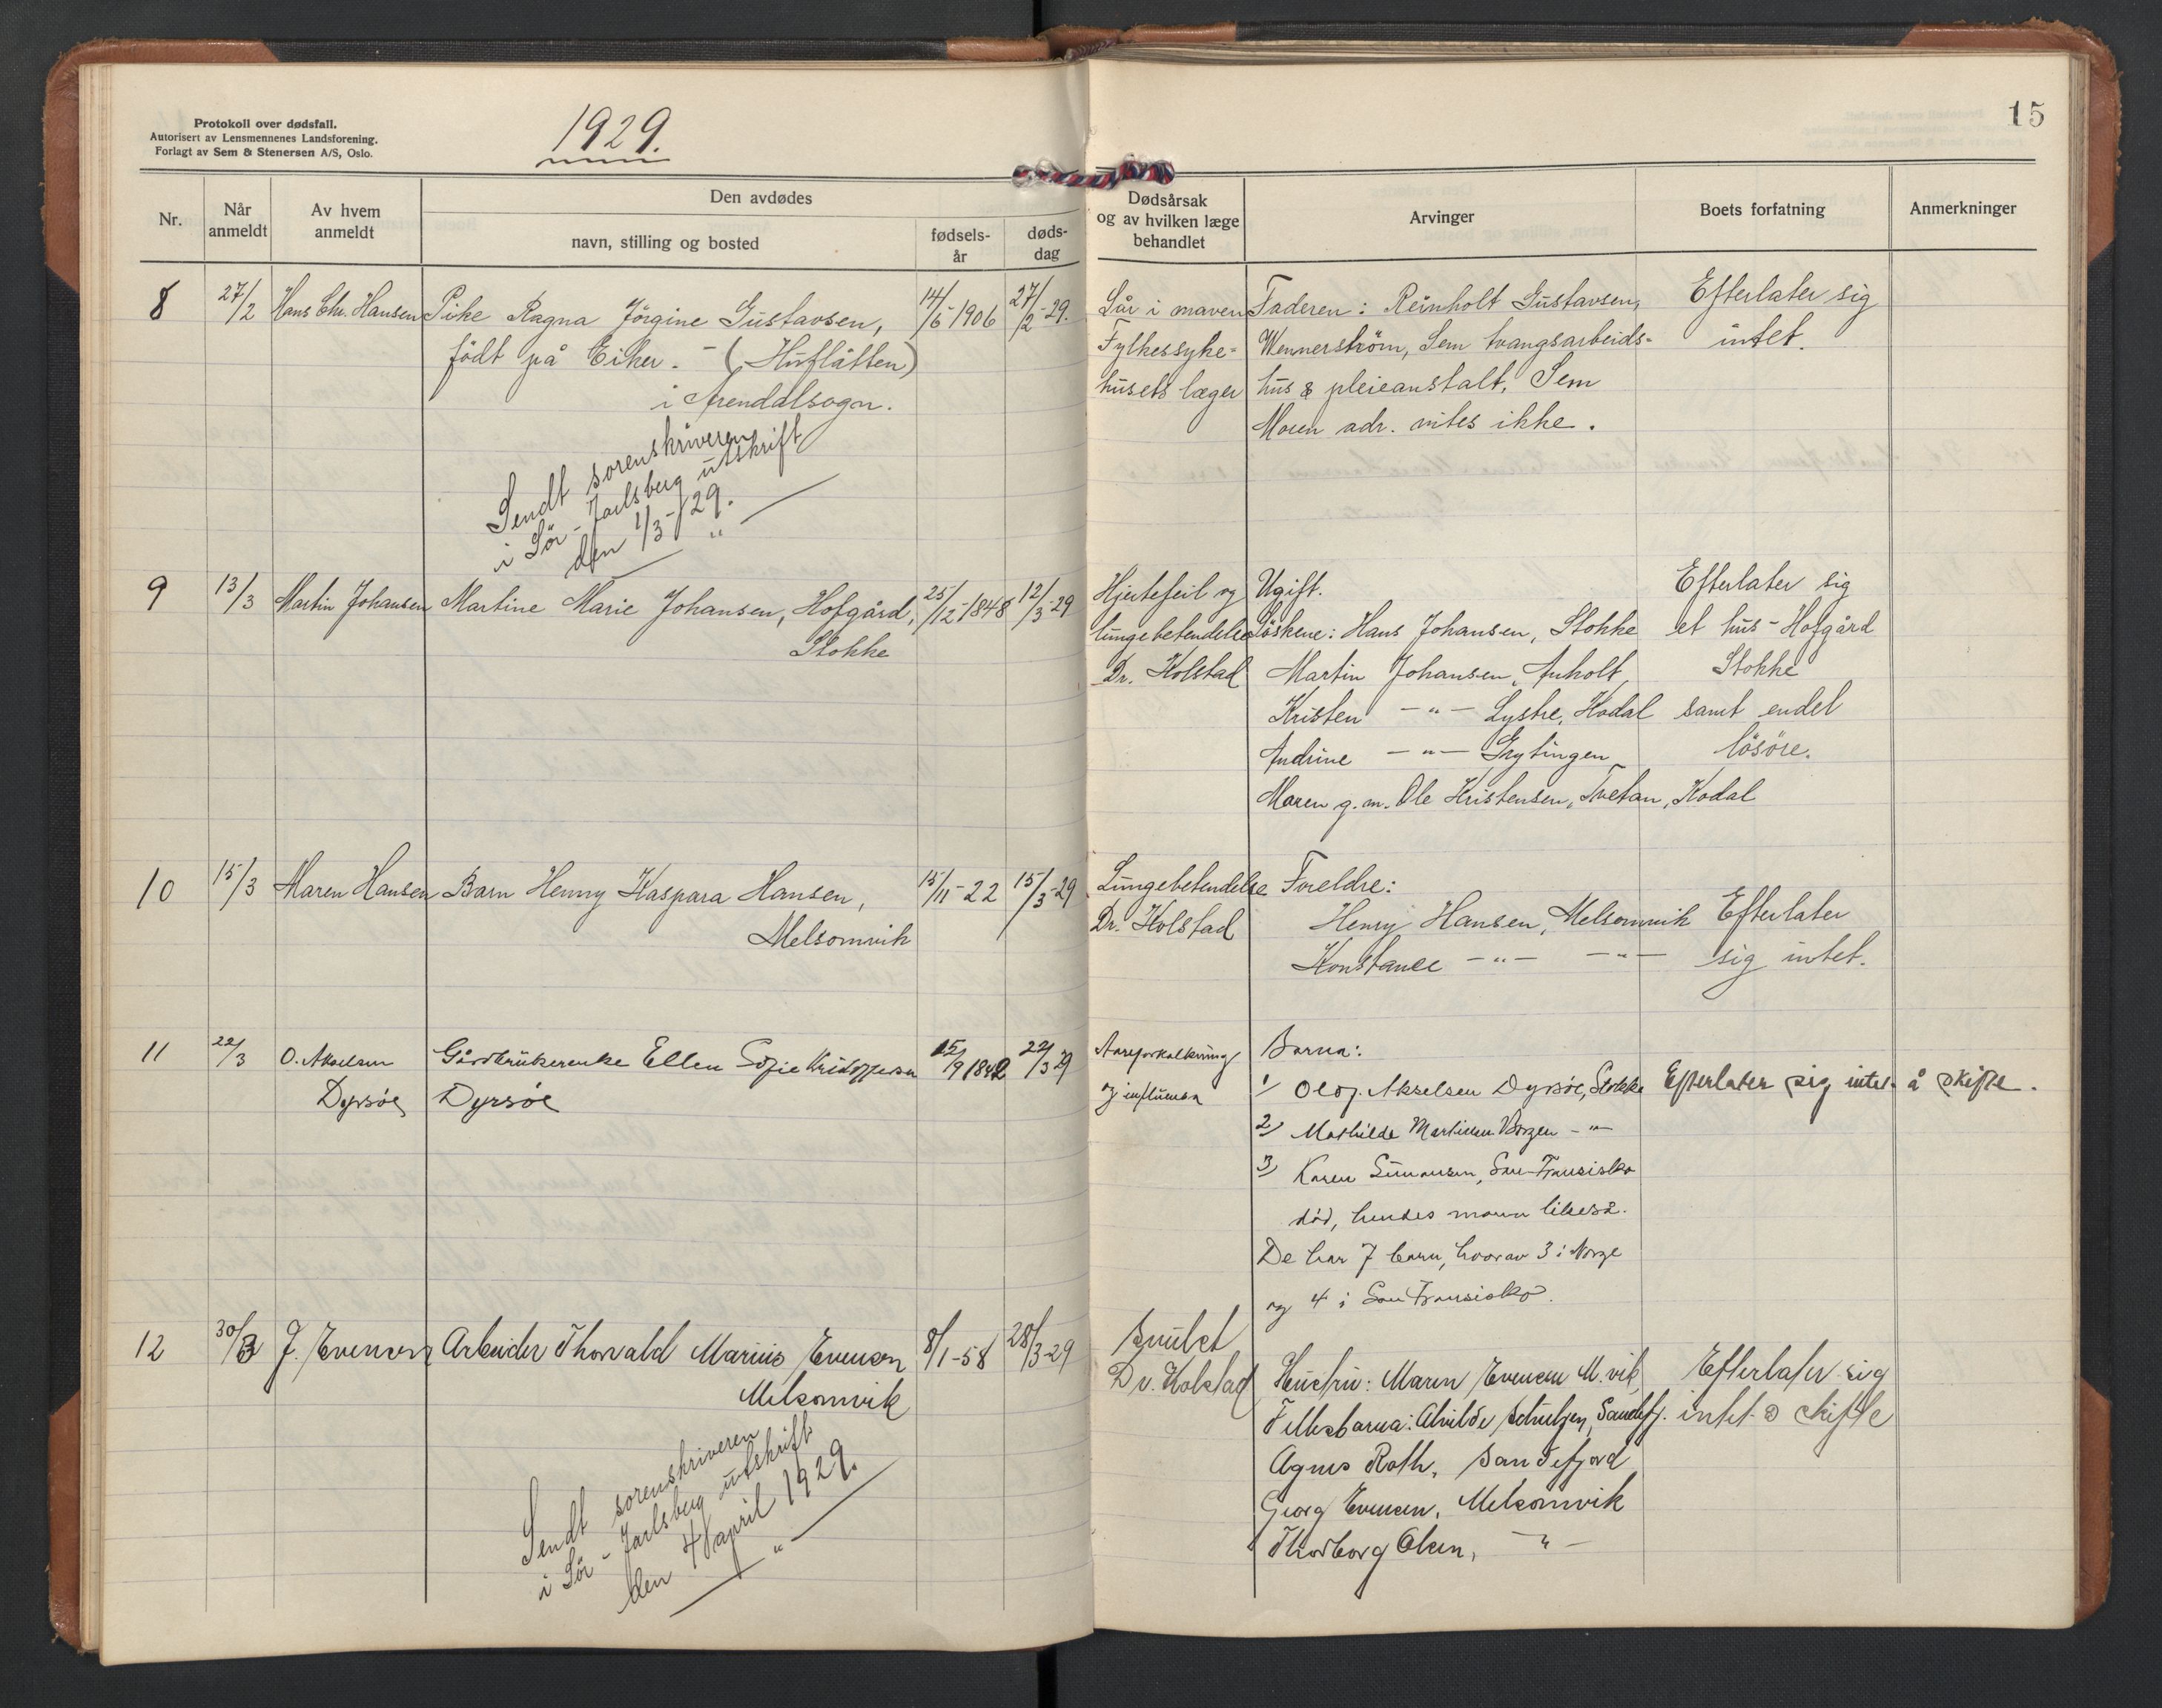 Protokoll over dødsfall.
Autorisert av Lensmennenes Landsforening.
Forlagt av Sem & Stenersen A/S, Oslo.
1929.
15
Nr.
Når anmeldt
Av hvem anmeldt
Den avdødes
navn, stilling og bosted
fødsels-år
døds-dag
Dødsårsak og av hvilken læge behandlet
Arvinger
Boets forfatning
Anmerkninger
8 27/2 Hans Chr. Hansen Pike Ragna Jörgine Gustavsen, 14/5-1906 27/2-29.
födt på Eiker. - (Huflåtten)
i Arendalsogn.
Sendt sorenskriveren
i Sör-Jarlsberg utskrift
den 1/3-29.
Sår i maven
Fylkessyke-
husets læger
Faderen: Reinholt Gustavsen,
Wennerström, Sem tvangsarbeids-
hus & pleieanstalt, Sem
Moren adr. vites ikke.
Efterlater sig
intet.
9 13/3 Martin Johansen Martine Marie Johansen, Hofgård, 25/12-1848 12/3-29
Stokke
Hjertefeil og
lungebetendelse
Dr. Kolstad
Ugift.
Söskene: Hans Johansen, Stokke
Martin Johansen, Anholt,
Kristen -"- Lystre, Kodal
Andrine -"- Grytingen
Maren g.m. Ole Kristensen, Tvetan, Kodal
Efterlater sig
et hus - Hofgård
Stokke
samt endel
lösöre.
10 15/3 Maren Hansen Barn Henny Kaspara Hansen, 15/11-22 15/3-29
Melsomvik
Lungebetendelse
Dr. Kolstad
Foreldre:
Henry Hansen, Melsomvik
Konstance -"- -"-
Efterlater
sig intet.
11 22/3 O. Akselsen Gårdbrukerenke Ellen Sofie Kristoffersen 15/9 1842 22/3 29
Dyrsöe Dyrsöe
Aareforkalkning
og influensa
Barna:
1) Olof. Akselsen Dyrsöe, Stokke
2) Mathilde Martinsen Borgen -"-
3) Karen Simonsen, San-Fransisko
död, hendes mann likeså.
De har 7 barn, hvorav 3 i Norge
og 4 i San Fransisko.
Efterlater sig intet å skifte.
12 30/3 J. Evensen Arbeider Thorvald Marius Evensen 8/1-58 28/3-29
Melsomvik
Sendt sorenskriveren
i Sör-Jarlsberg utskrift
den 4/april 1929.
"
Dr. Kolstad
Hustru: Maren Evensen M.vik,
Fellesbarna: Alvilde Schultzen, Sandefj.
Agnes Roth, Sandefjord
Georg Evensen, Melsomvik
Thorborg Olsen, -"-
Efterlater sig
intet å skifte